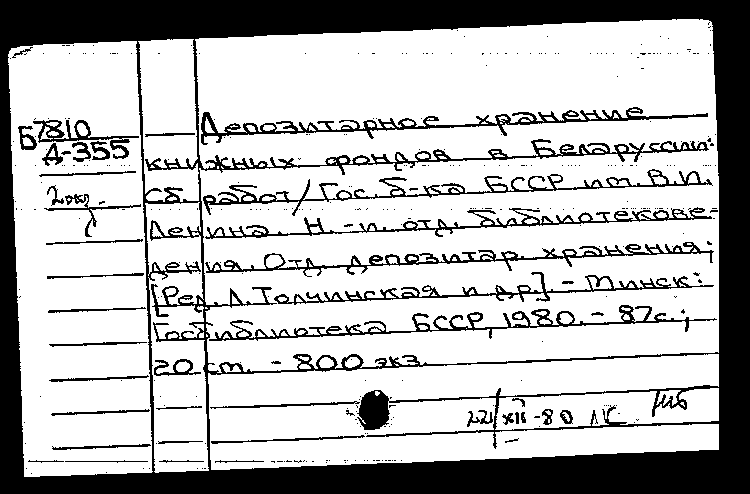 Б7810
Д-355
2 экз.
Депозитарное хранение
книжных фондов в Беларуссии:
Сб. работ/Гос. б-ка БССР им. В.И.
Ленина. Н.-и. отд. библиотекове-
дения. Отд. депозитар. хранения;
[Ред. Л. Толчинская и др.]. - Минск:
Госбиблиотека БССР, 1980. - 87с.;
20 см. - 800 экз.
22/XII-80